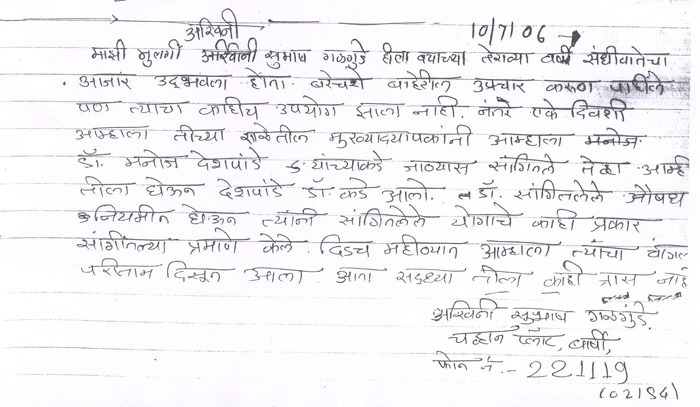 अश्विनी
10/7/06
माझी मुलगी अश्विनी सुभाष गळगुंडे हीला वयाच्या तेराव्या वर्षी संधीवातेचा
आजार उदभवला होता. बरेचशे बाहेरील उपचार करुण पाहीले
पण त्याचा काहीच उपयोग झाला नाही. नंतर एके दिवशी
आम्हाला तीच्या शाळेतील मुख्याद्यापकांनी आम्हाला मनोज
डॉ. मनोज देशपांडे यांच्याकडे जाण्यास सांगितले तेव्हा आम्ही
तीला घेऊन देशपांडे डॉ. कडे आलो. डॉ. सांगितलेले औषध
नियमीत घेऊन त्यांनी सांगितलेले योगाचे काही प्रकार
सांगीतल्या प्रमाणे केले. दिडच महीण्यात आम्हाला त्यांचा चांगला
परीणाम दिसून आला. आता सद्ध्या तीला काही त्रास नाही
अश्विनी सुभाष गळगुंडे.
चव्हान प्लॉट, बार्शी,
फोन नं.- 221119
(02184)